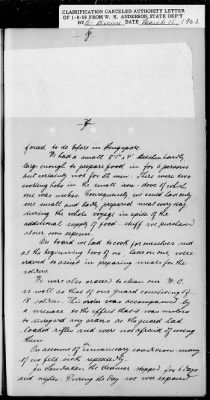 CLASSIFICATION CANCELED AUTHORITY LETTER
OF 1-8-58 FROM W. H. ANDERSON, STATE DEP'T
BY DATE March 12, 1962
7
forced to do before in Singapore.
We had a small 5' x 4' kitchen hardly
large enough to prepare food in for 6 persons
but certainly not for the men. There were two
cooking holes in the small iron stove of which
one was useless. Consequently we could have only
one small and badly prepared meal every day
during the whole voyage in spite of the
additional supply of food-stuff we purchased
at our own expense.
On board we had to cook for ourselves and
at the beginning two of us, later on one, were
asked to assist in preparing meals for the
soldiers.
We were also forced to clean our W.C.
as well as that of our guard consisting of
18 soldiers. This order was accompanied by
a menace to the effect that it was unwise
to disregard any orders as the guard had
loaded rifles and were not afraid of using
them.
On account of insanitary conditions many
of us fell sick repeatedly.
In the steamer stopped for 6 days
and nights. During the day we were exposed